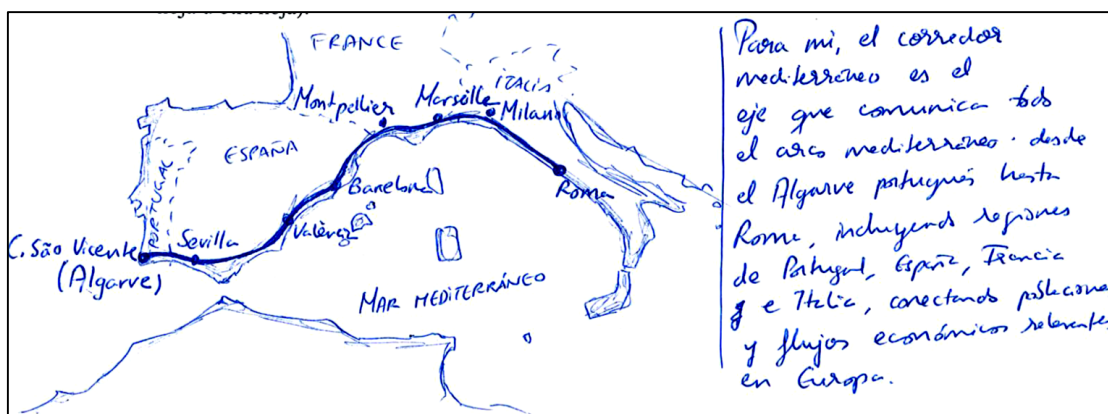 FRANCE
ITALIS
Montpellier
Marsella
Milano
ESPAÑA
PORTUGAL
Barcelona
Roma
València
Sevilla
C. São Vicente
(Algarve)
MAR MEDITERRÁNEO
Para mi, el corredor
mediterráneo es el
eje que comunica todo
el arco mediterráneo. desde
el Algarve portugués hasta
Roma, incluyendo regiones
de Portugal, España, Francia
e Italia, conectando poblaciones
y flujos económicos relevantes
en Europa.